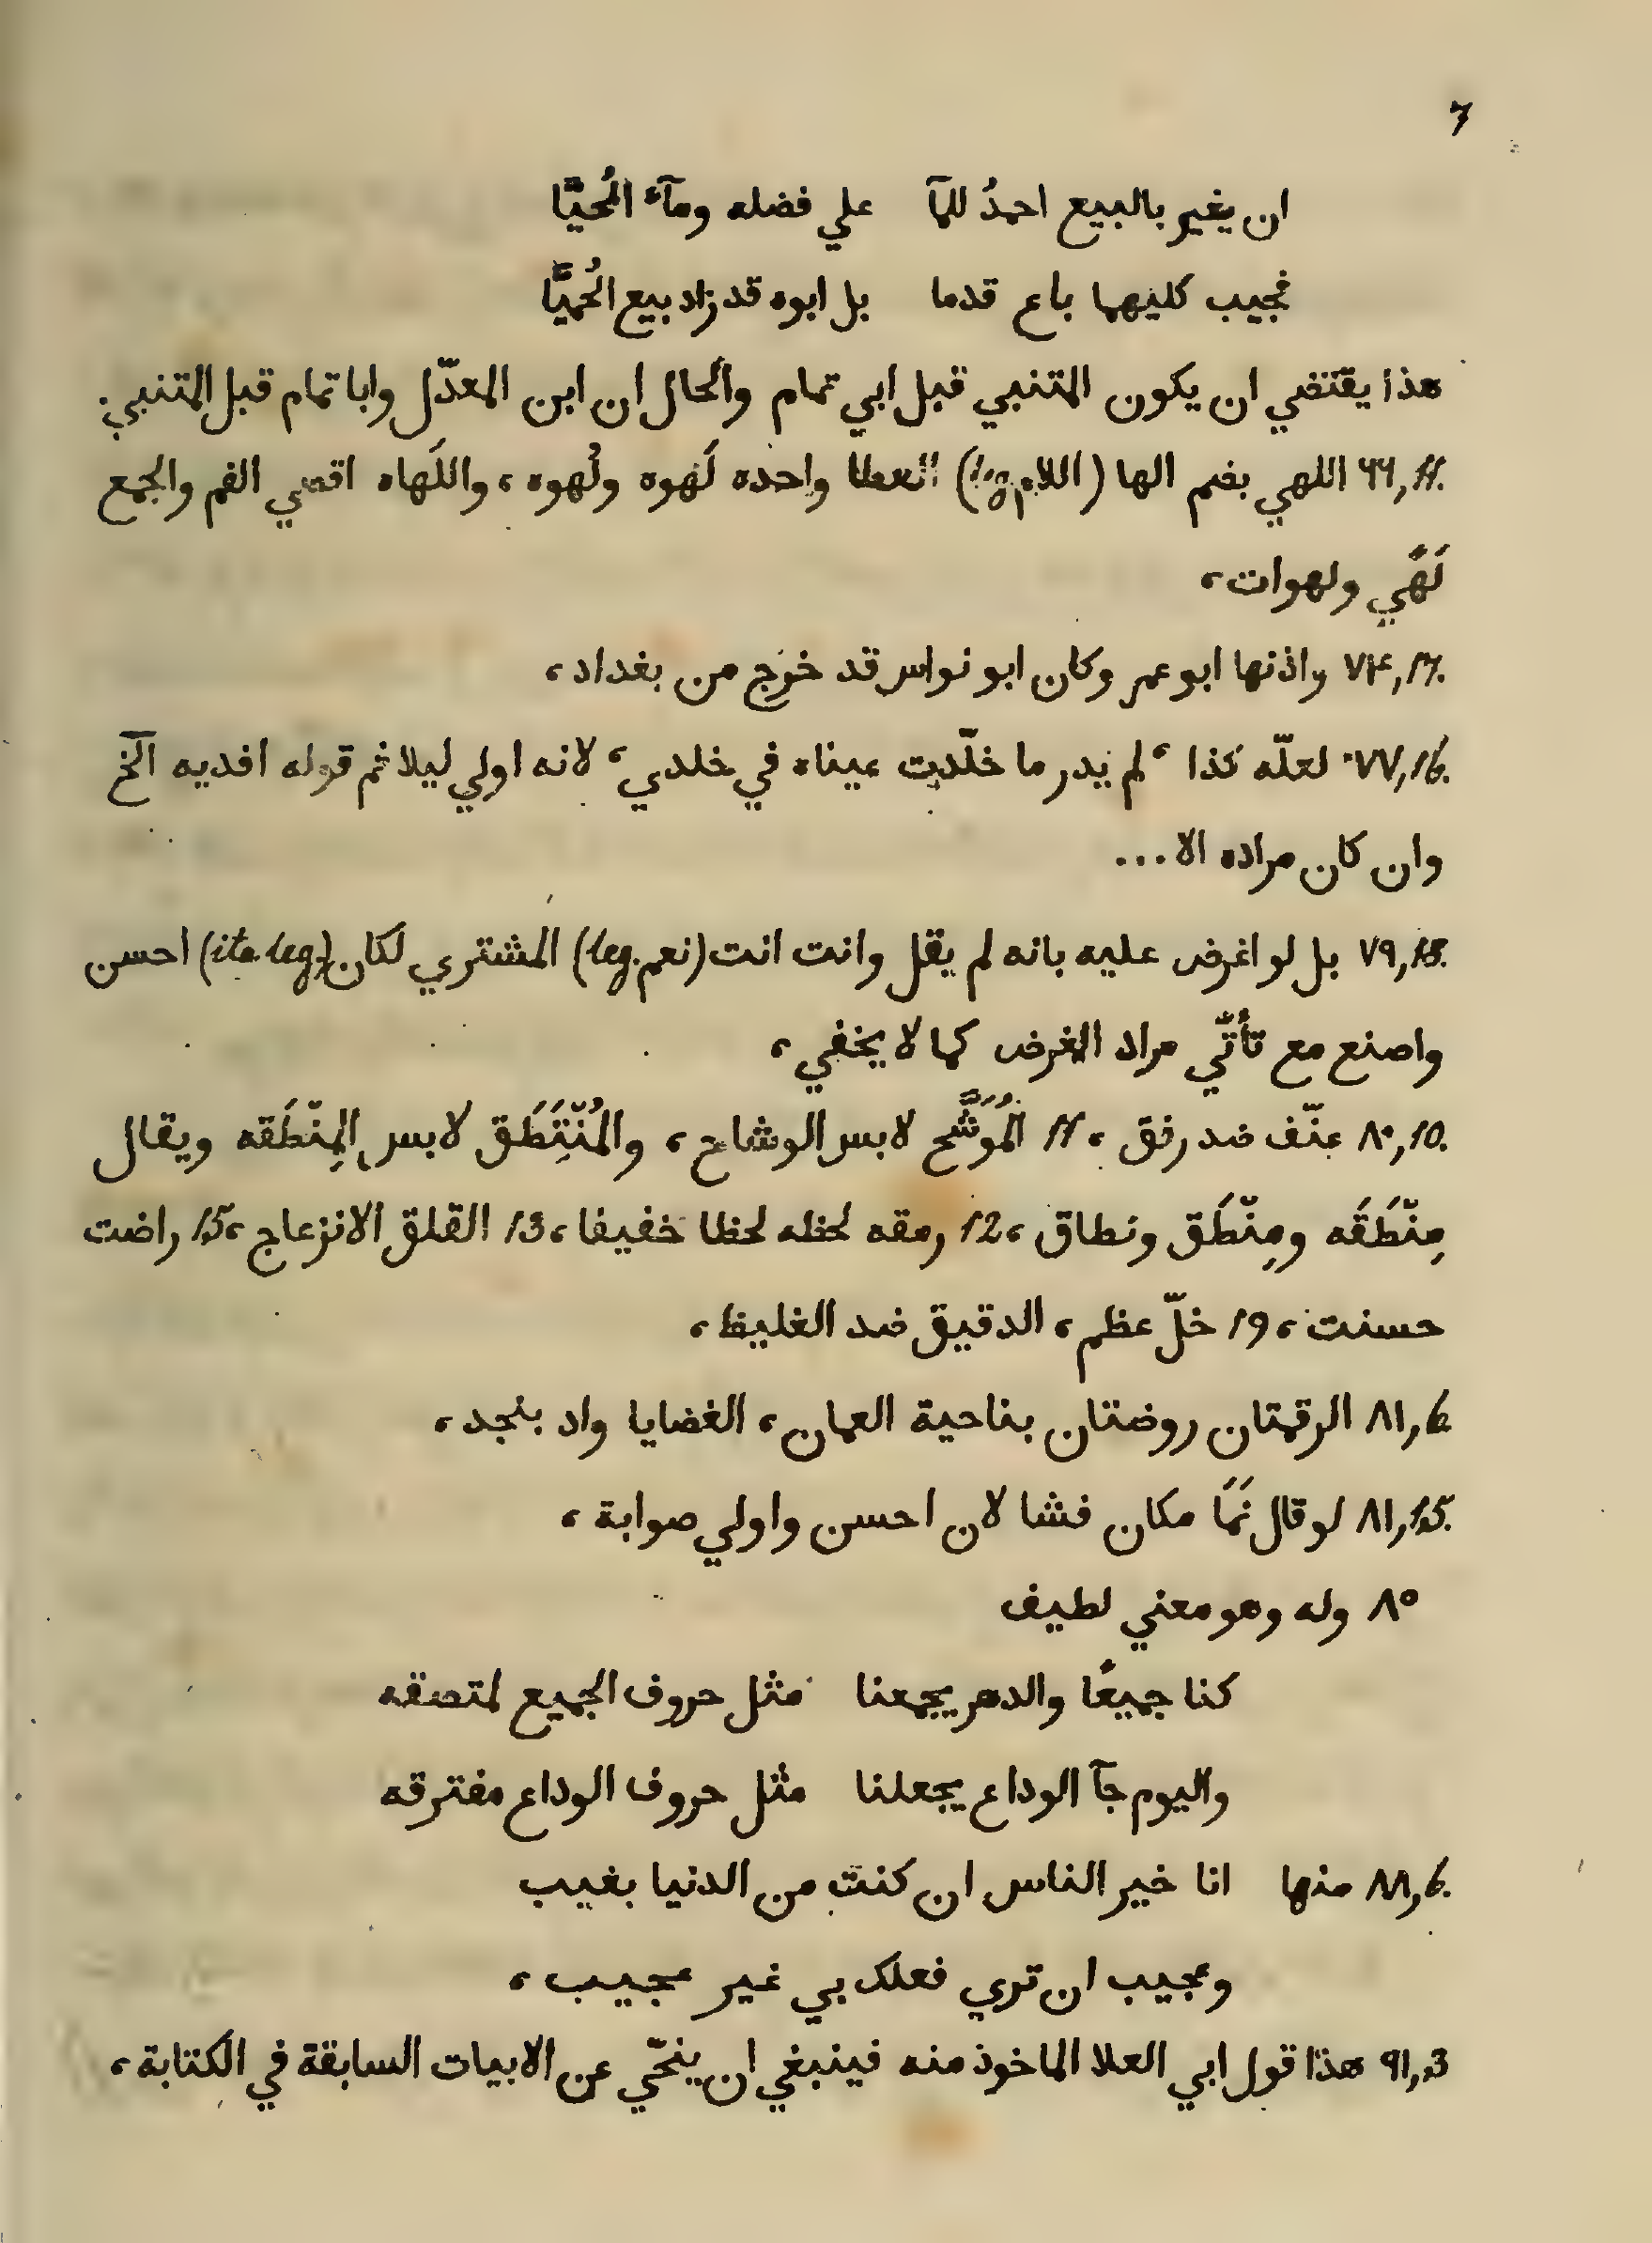 7
ان يغير بالبيع احمدُ للمآ علي فضله ومآء المُحيَّا
فجيب كليهما باع قدما بل ابوه قد زاد بيع الحُميَّا
هذا يقتضي ان يكون المتنبي قبل ابي تمام والحال ان ابن المعدّل وابا تمام قبل المتنبي.
٦٦,11. اللهي بضم الها (اللام leg.) العطا واحده لَهوه ولُهوه، واللَهاه اقصي الفم والجمع
لَهًي ولهوات،
٧٤,17. واذنها ابو عمر وكان ابو نواس قد خرج من بغداد،
٧٧,16. لعلّه كذا ،لم يدر ما خلّدت عيناه في خلدي، لانه اولي ليلا ثم قوله افديه الخ
وان كان مراده الا ...
٧٩,13. بل لو اغرض عليه بانه لم يقل وانت انت (نعم leg.) المشتري لكان (ita leg.) احسن
واصنع مع تأتّي مراد الغرض كما لا يخفي،
٨٠,10. عنّف ضد رفق، 11 المُوَشَّح لابس الوشاح، والمُنّتِطَق لابس المِنّطَقه ويقال
مِنّطَقَه ومِنّطَق ونطاق، 12 رمقه لحظه لحظا خفيفا، 13 القلق الانزعاج، 15 راضت
حسنت، 19 خلّ عظم، الدقيق ضد الغليظ،
٨١,6 الرقمتان روضتان بناحية العمان، الغضايا واد بنجد،
٨١,15. لو قال نَمَا مكان فشا لان احسن واولي صوابة،
٨٥ وله وهو معني لطيف
كنا جميعًا والدهر يجمعنا مثل حروف الجميع لمتصقه
واليوم جآ الوداع يجعلنا مثل حروف الوداع مفترقه
٨٨,6. منها انا خير الناس ان كنت من الدنيا بغيب
وعجيب ان تري فعلك بي غير عجيب،
٩١,3 هذا قول ابي العلا الماخوذ منه فينبغي ان ينحّي عن الابيات السابقة في الكتابة،